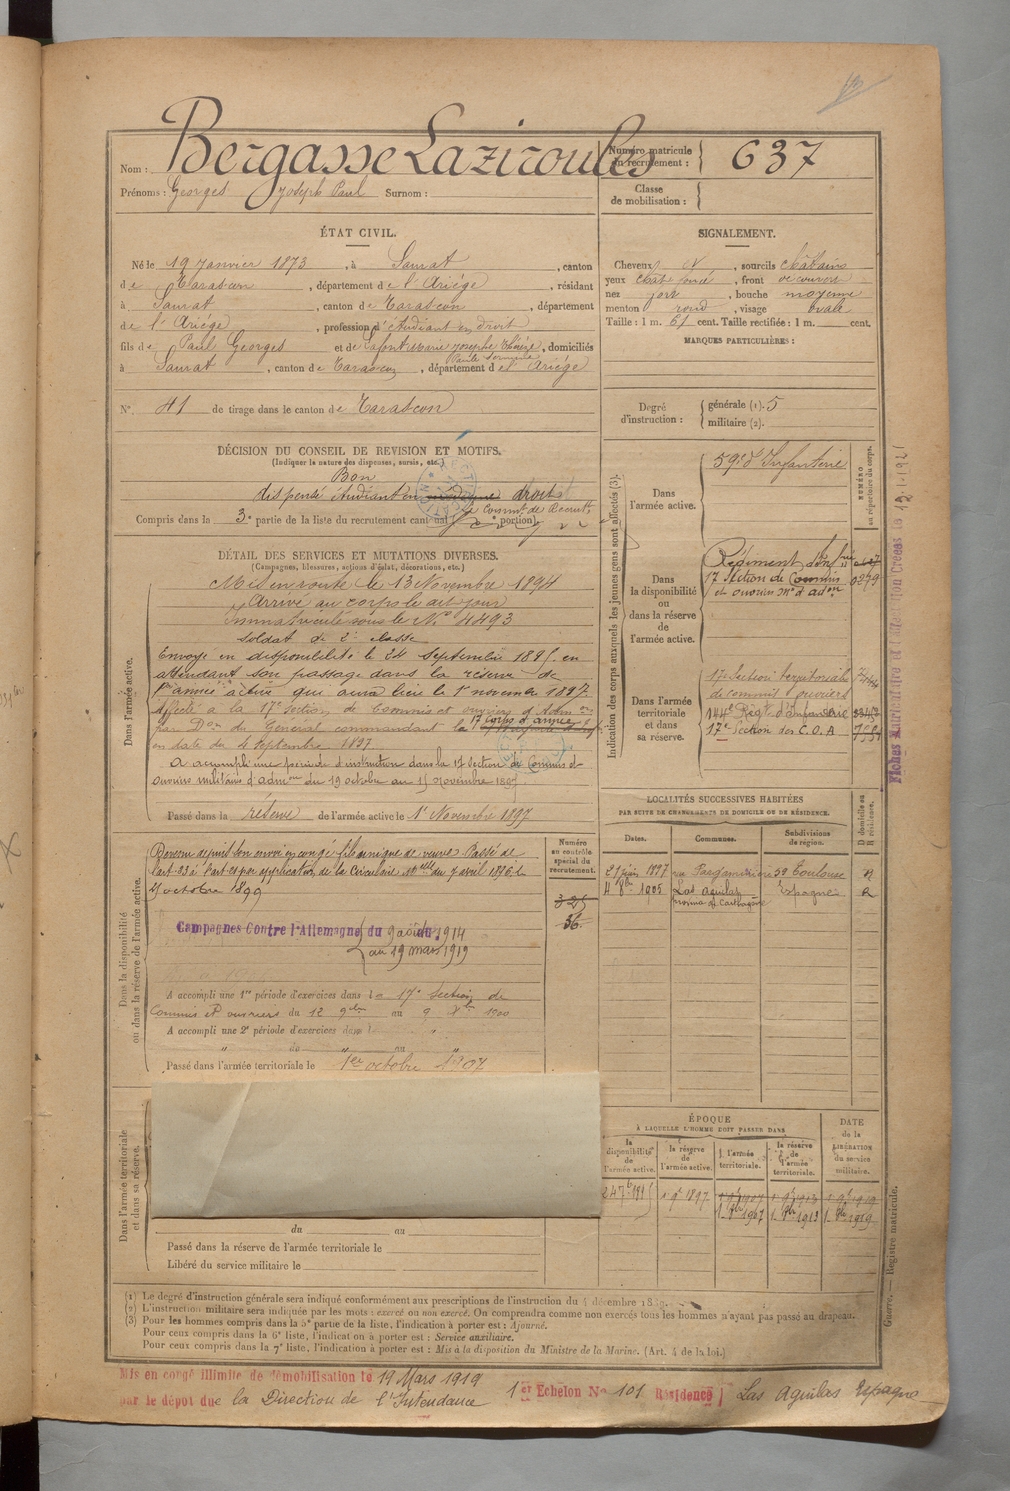 Nom : Bergasse Laziroules
Prénoms : Georges Joseph Paul Surnom :
Numéro matricule du recrutement : 637
Classe de mobilisation :
ÉTAT CIVIL.
Né le 19 Janvier 1873, à Saurat, canton
de Tarascon, département de l'Ariége, résidant
à Saurat, canton de Tarascon, département
de l'Ariége, profession d'étudiant en droit
fils de Paul Georges et de Lafont Marie Josephe Thérèse, domiciliés
à Saurat, canton de Tarascon, département de l'Ariége
N° 41 de tirage dans le canton de Tarascon
SIGNALEMENT.
Cheveux , sourcils châtains
yeux , front découvert
nez fort, bouche moyenne
menton rond, visage ovale
Taille : 1 m. 61 cent. Taille rectifiée : 1 m. cent.
MARQUES PARTICULIÈRES :
Degré d'instruction : générale (1). 5
militaire (2).
DÉCISION DU CONSEIL DE REVISION ET MOTIFS.
(Indiquer la nature des dispenses, sursis, etc.)
Bon
dispensé étudiant en droit
Compris dans la 3e partie de la liste du recrutement cantonal
DÉTAIL DES SERVICES ET MUTATIONS DIVERSES.
(Campagnes, blessures, actions d'éclat, décorations, etc.)
Dans l'armée active.
Mis en route le 13 Novembre 1894
Arrivé au corps le dit jour
Immatriculé sous le N° 4493
Soldat de 2e classe
Envoyé en disponibilité le 24 Septembre 1895 en
attendant son passage dans la réserve de
l'armée active qui aura lieu le 1er novembre 1897
Affecté à la 17e section de Commis et ouvriers d'Adm on
par Don du Général commandant le 17 Corps d'armée
en date du 4 Septembre 1897
A accompli une période d'instruction dans la 17 section de Commis et
ouvriers militaires d'admon du 19 octobre au 15 Novembre 1897
Passé dans la réserve de l'armée active le 1er Novembre 1897
Indication des corps auxquels les jeunes gens sont affectés (3).
Dans l'armée active.
59e d'Infanterie
NUMÉRO au répertoire du corps.
Dans la disponibilité ou dans la réserve de l'armée active.
Régiment d'Infrie
17 Section de Commis
et ouvriers mres d'adon
0279
Dans l'armée territoriale et dans sa réserve.
17e Section territoriale
de commis ouvriers
144e Régt d'Infanterie
17e Section des C.O.A
LOCALITÉS SUCCESSIVES HABITÉES
PAR SUITE DE CHANGEMENTS DE DOMICILE OU DE RÉSIDENCE.
Dates. Communes. Subdivisions de région. D domicile ou R résidence.
21 juin 1897 Toulouse R
4 8bre 1905 Las Aguilas Espagne R
Dans la disponibilité ou dans la réserve de l'armée active.
Numéro au contrôle spécial du recrutement.
325
36
Devenu depuis son envoi en congé fils unique de veuve. Passé de
l'art. 23 à l'art. 21 par application de la Circulaire Mlle du 7 avril 1896 le
octobre 1899
Campagnes Contre l'Allemagne du 9 août 1914
au 19 mars 1919
A accompli une 1re période d'exercices dans la 17e Section de
Commis et ouvriers du 12 9bre au 9 Xbre 1900
A accompli une 2e période d'exercices dans l
du " au "
Passé dans l'armée territoriale le 1er octobre 1907
Dans l'armée territoriale et dans sa réserve.
du au
Passé dans la réserve de l'armée territoriale le
Libéré du service militaire le
ÉPOQUE
À LAQUELLE L'HOMME DOIT PASSER DANS
la disponibilité de l'armée active. la réserve de l'armée active. l'armée territoriale. la réserve de l'armée territoriale.
DATE de la LIBÉRATION du service militaire.
24 7bre 1895 1er 9bre 1897 1 9bre 1907 1 9bre 1913 1 9bre 1919
1 8bre 1907 1 8bre 1913 1 8bre 1919
(1) Le degré d'instruction générale sera indiqué conformément aux prescriptions de l'instruction du 4 décembre 1889.
(2) L'instruction militaire sera indiquée par les mots : exercé ou non exercé. On comprendra comme non exercés tous les hommes n'ayant pas passé au drapeau.
(3) Pour les hommes compris dans la 5e partie de la liste, l'indication à porter est : Ajourné.
Pour ceux compris dans la 6e liste, l'indication à porter est : Service auxiliaire.
Pour ceux compris dans la 7e liste, l'indication à porter est : Mis à la disposition du Ministre de la Marine. (Art. 4 de la loi.)
Guerre. — Registre matricule.
Mis en congé illimité de démobilisation le 19 Mars 1919 1er Echelon N° 101 Résidence Las Aguilas Espagne
par le dépôt du de la Direction de l'Intendance